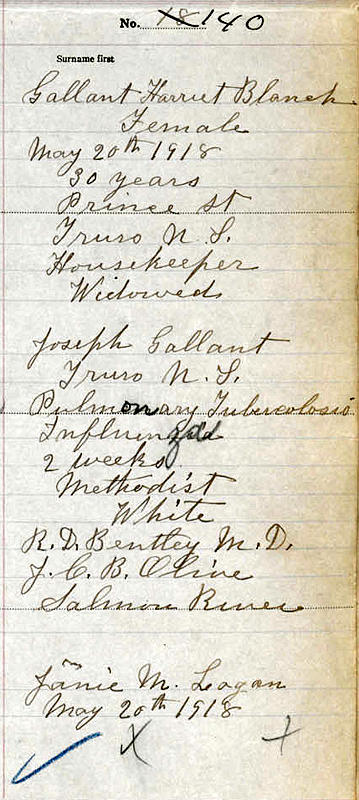 No. 18 140
Surname first
Gallant Harriet Blanch
Female
May 20th 1918
30 years
Prince St
Truro N. S.
Housekeeper
Widowed
Joseph Gallant
Truro N. S.
Pulmonary Tuberculosis
Influenza
2 weeks
Methodist
White
R. D. Bentley M. D.
J. C. B. Olive
Salmon River
Janie M. Logan
May 20th 1918
X +